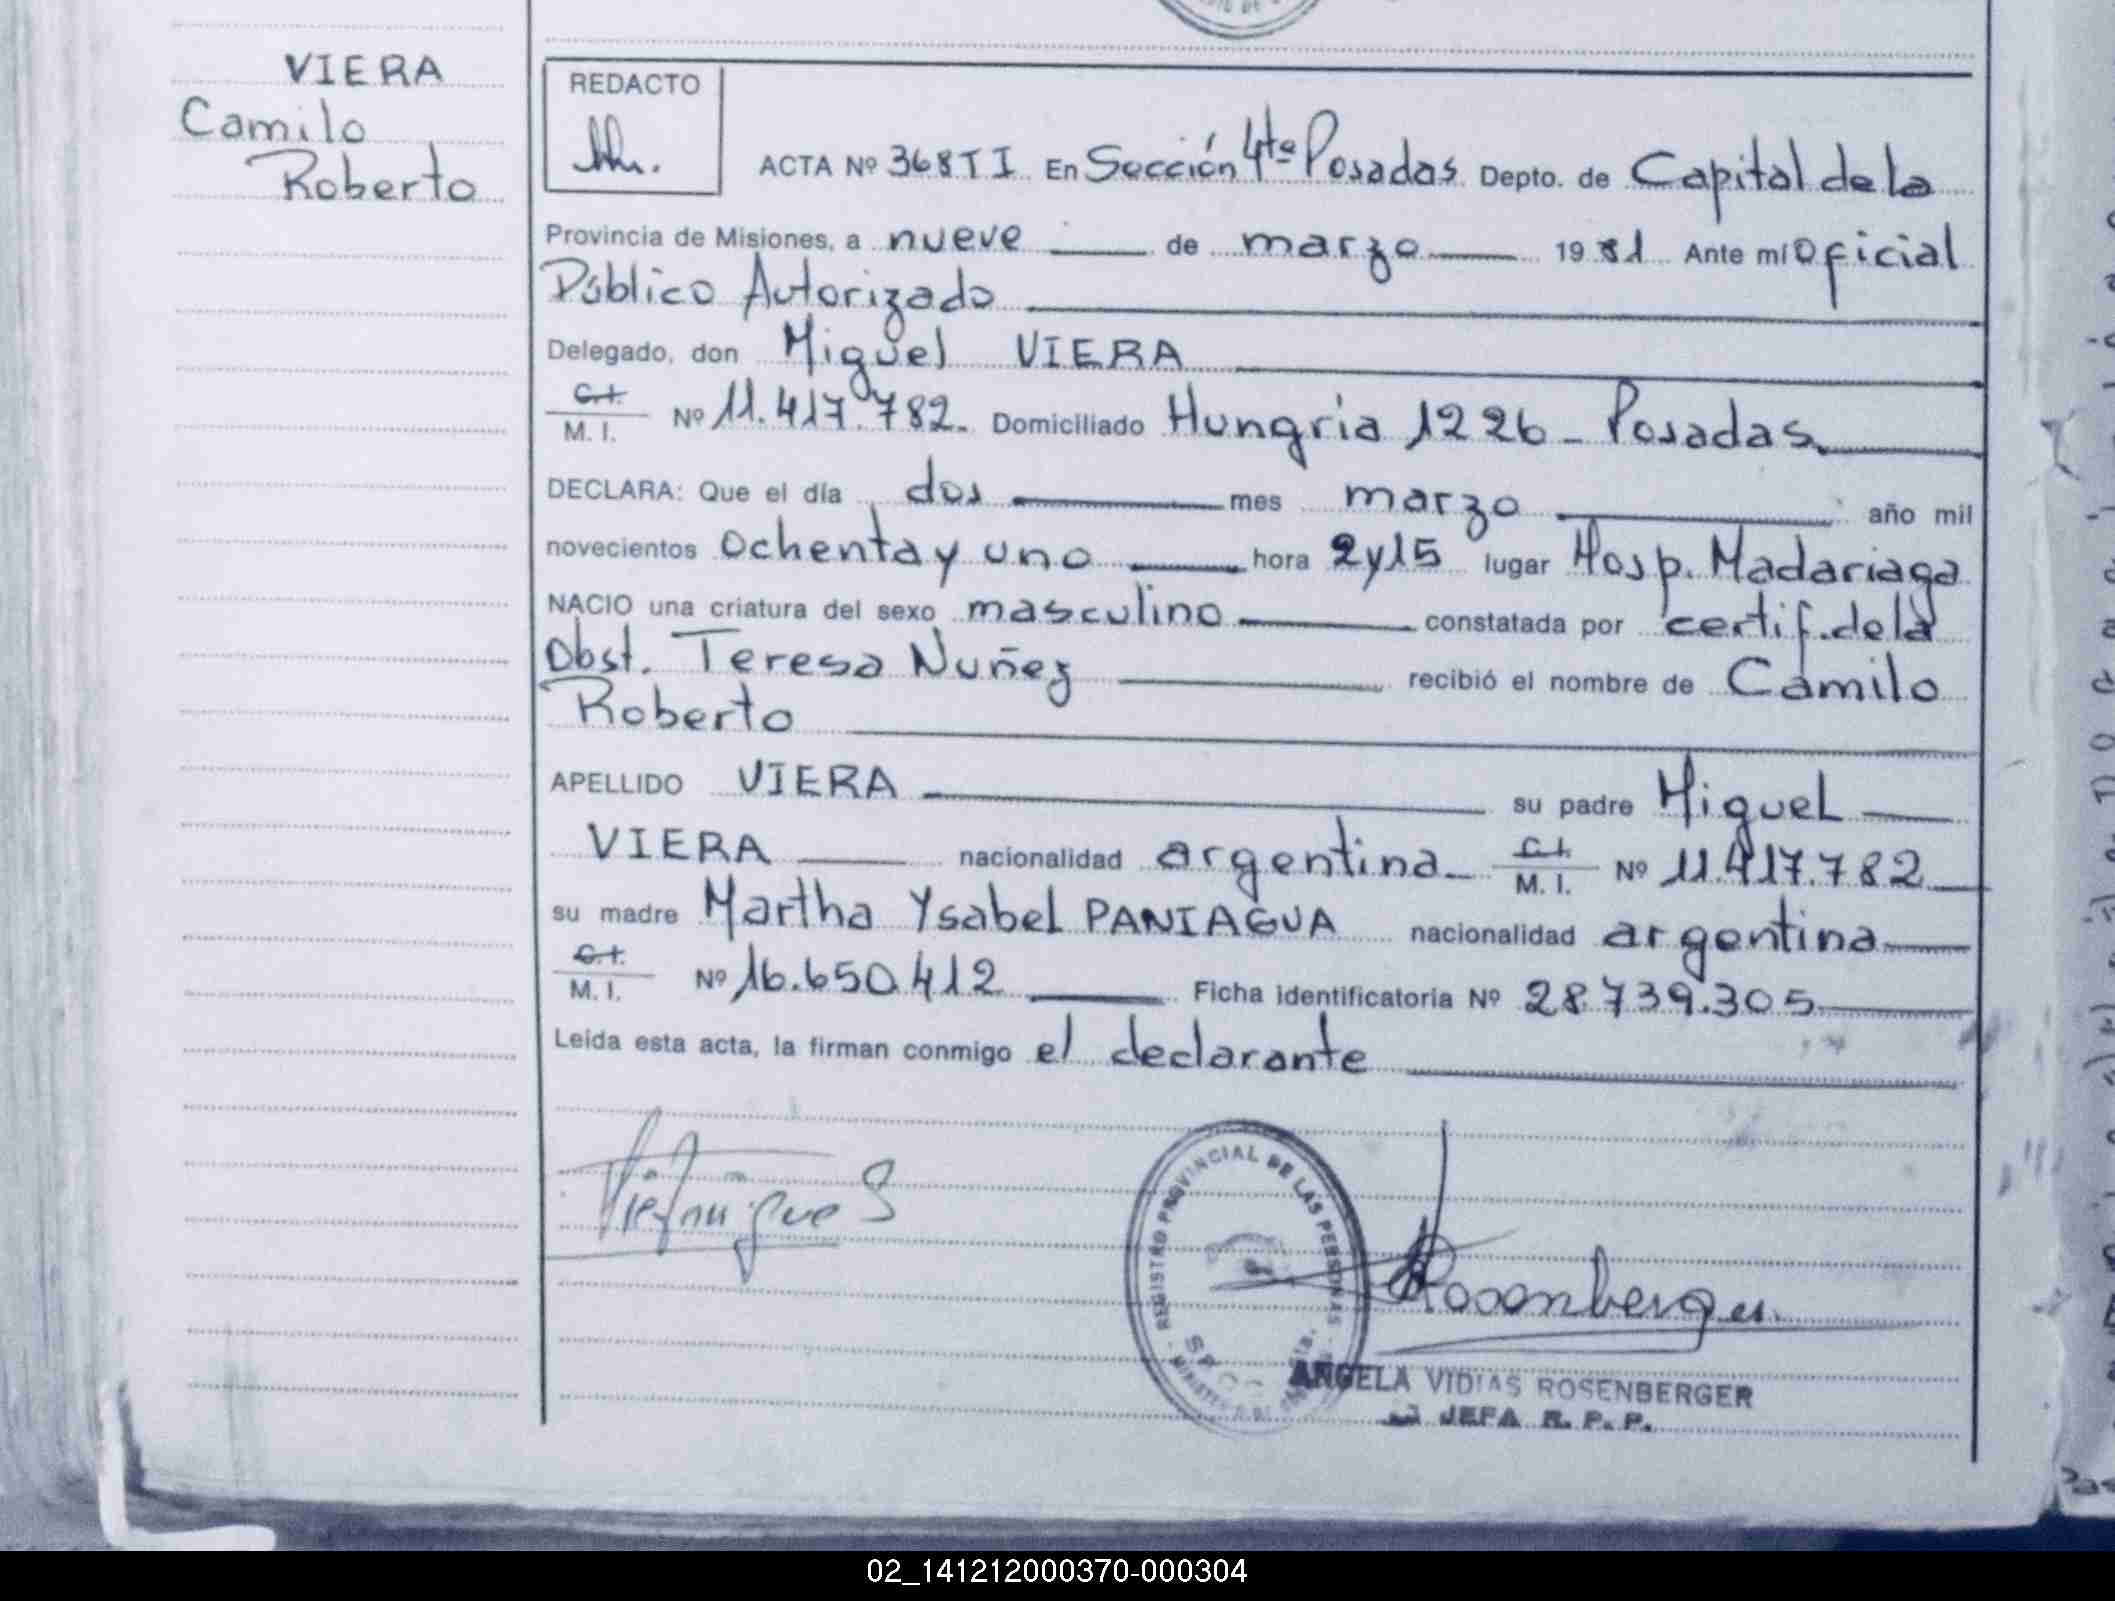 VIERA
Camilo
Roberto
REDACTO
ACTA Nº 368 T I En Sección 4ta Posadas Depto. de Capital de la
Provincia de Misiones, a nueve de marzo 1981 Ante mí Oficial
Público Autorizado
Delegado, don Miguel VIERA
C.I.
M. I. Nº 11.417.782. Domiciliado Hungria 1226 - Posadas
DECLARA: Que el día dos mes marzo año mil
novecientos ochenta y uno hora 2 y 15 lugar Hosp. Madariaga
NACIO una criatura del sexo masculino constatada por certif. de la
Obst. Teresa Nuñez recibió el nombre de Camilo
Roberto
APELLIDO VIERA su padre Miguel
VIERA nacionalidad argentina C.I.
M. I. Nº 11.417.782
su madre Martha Ysabel PANIAGUA nacionalidad argentina
C.I.
M. I. Nº 16.650.412 Ficha identificatoria Nº 28.739.305
Leída esta acta, la firman conmigo el declarante
REGISTRO PROVINCIAL DE LAS PERSONAS
Rosenberger
ANGELA VIDIAS ROSENBERGER
JEFA R. P. P.
02_141212000370-000304